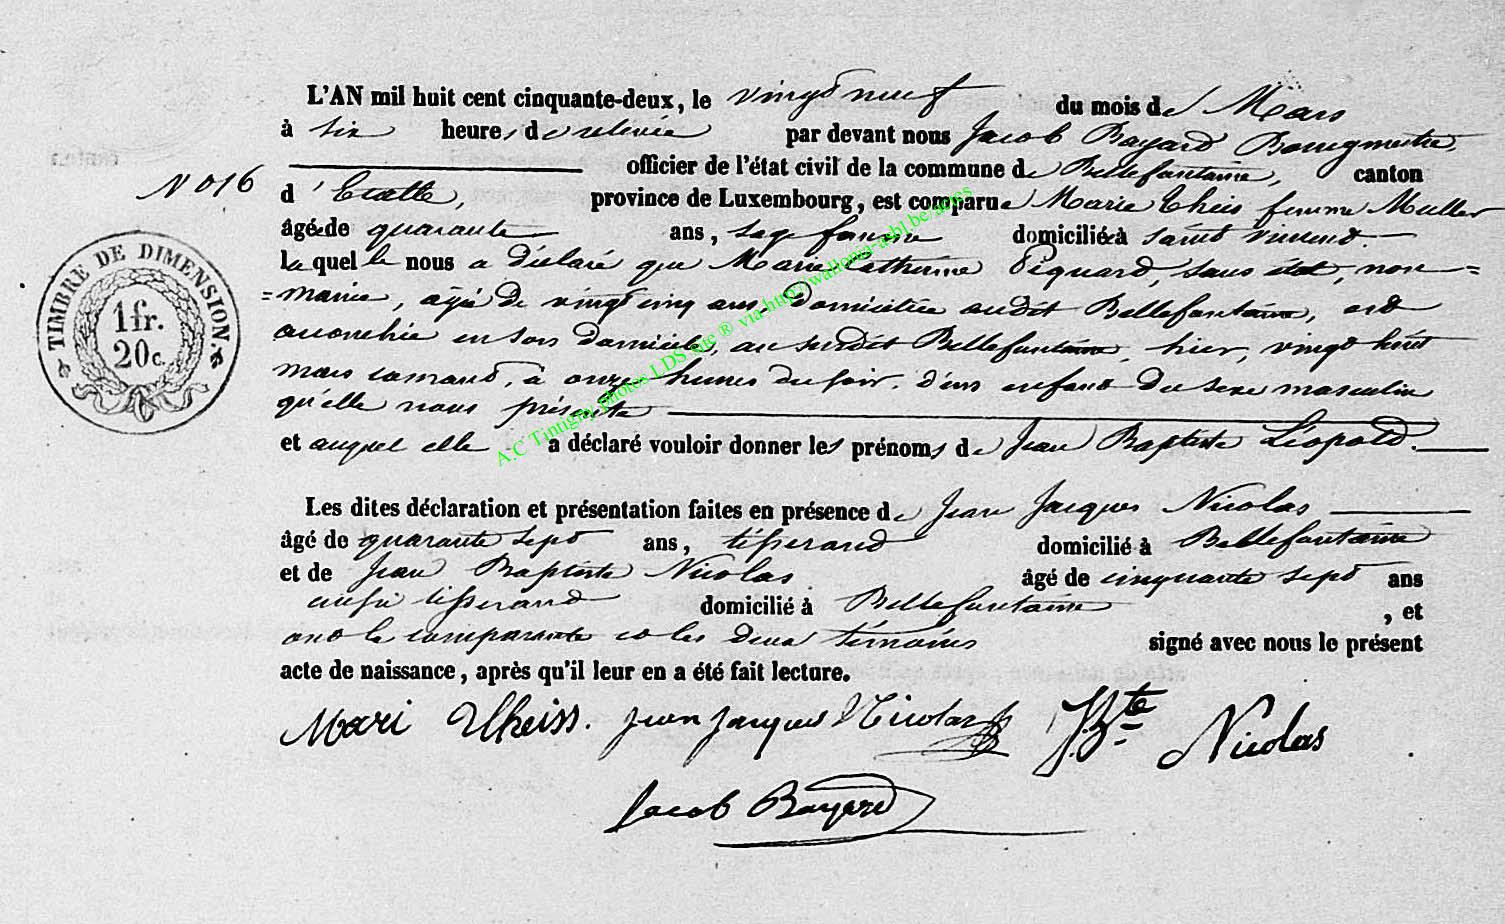 L'AN mil huit cent cinquante-deux, le vingt neuf du mois de Mars
à six heures de relevée par devant nous Jacob Bayard Bourgmestre,
officier de l'état civil de la commune de Bellefontaine, canton
N° 16
d'Etalle, province de Luxembourg, est comparue Marie Theis femme Muller
âgée de quarante ans, sage femme domiciliée à Saint Vincent.
laquelle nous a déclaré que Marie Catherine Péquard, sans état, non=
=mariée, âgée de vingt cinq ans, domiciliée audit Bellefontaine, est
accouchée en son domicile, au susdit Bellefontaine, hier, vingt huit
mars courant, à onze heures du soir, d'un enfant du sexe masculin
qu'elle nous présente
et auquel elle a déclaré vouloir donner les prénoms de Jean Baptiste Léopold.
Les dites déclaration et présentation faites en présence de Jean Jacques Nicolas
âgé de quarante sept ans, tisserand domicilié à Bellefontaine
et de Jean Baptiste Nicolas âgé de cinquante sept ans
aussi tisserand domicilié à Bellefontaine, et
ont la comparante et les deux témoins signé avec nous le présent
acte de naissance, après qu'il leur en a été fait lecture.
Mari Theiss. Jean Jacques Nicolas JBte Nicolas
Jacob Bayard
TIMBRE DE DIMENSION.
1 fr.
20 c.
A.C Tintigny photos LDS etc ® via http://wallonia-asbl.be/actes